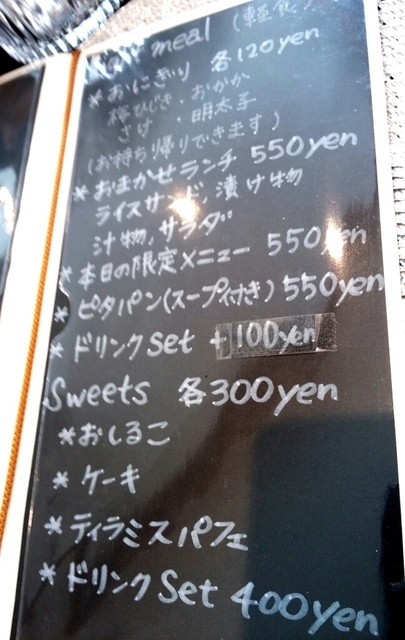 meal (軽食)
*おにぎり 各120yen
ひじき・おかか
さけ・明太子
(お持ち帰りできます)
*おまかせランチ 550yen
ライスサンド,漬け物
汁物,サラダ
*本日の限定メニュー 550yen
*ピタパン(スープ付き) 550yen
*ドリンクSet +100yen
Sweets 各300yen
*おしるこ
*ケーキ
*ティラミスパフェ
*ドリンクSet 400yen